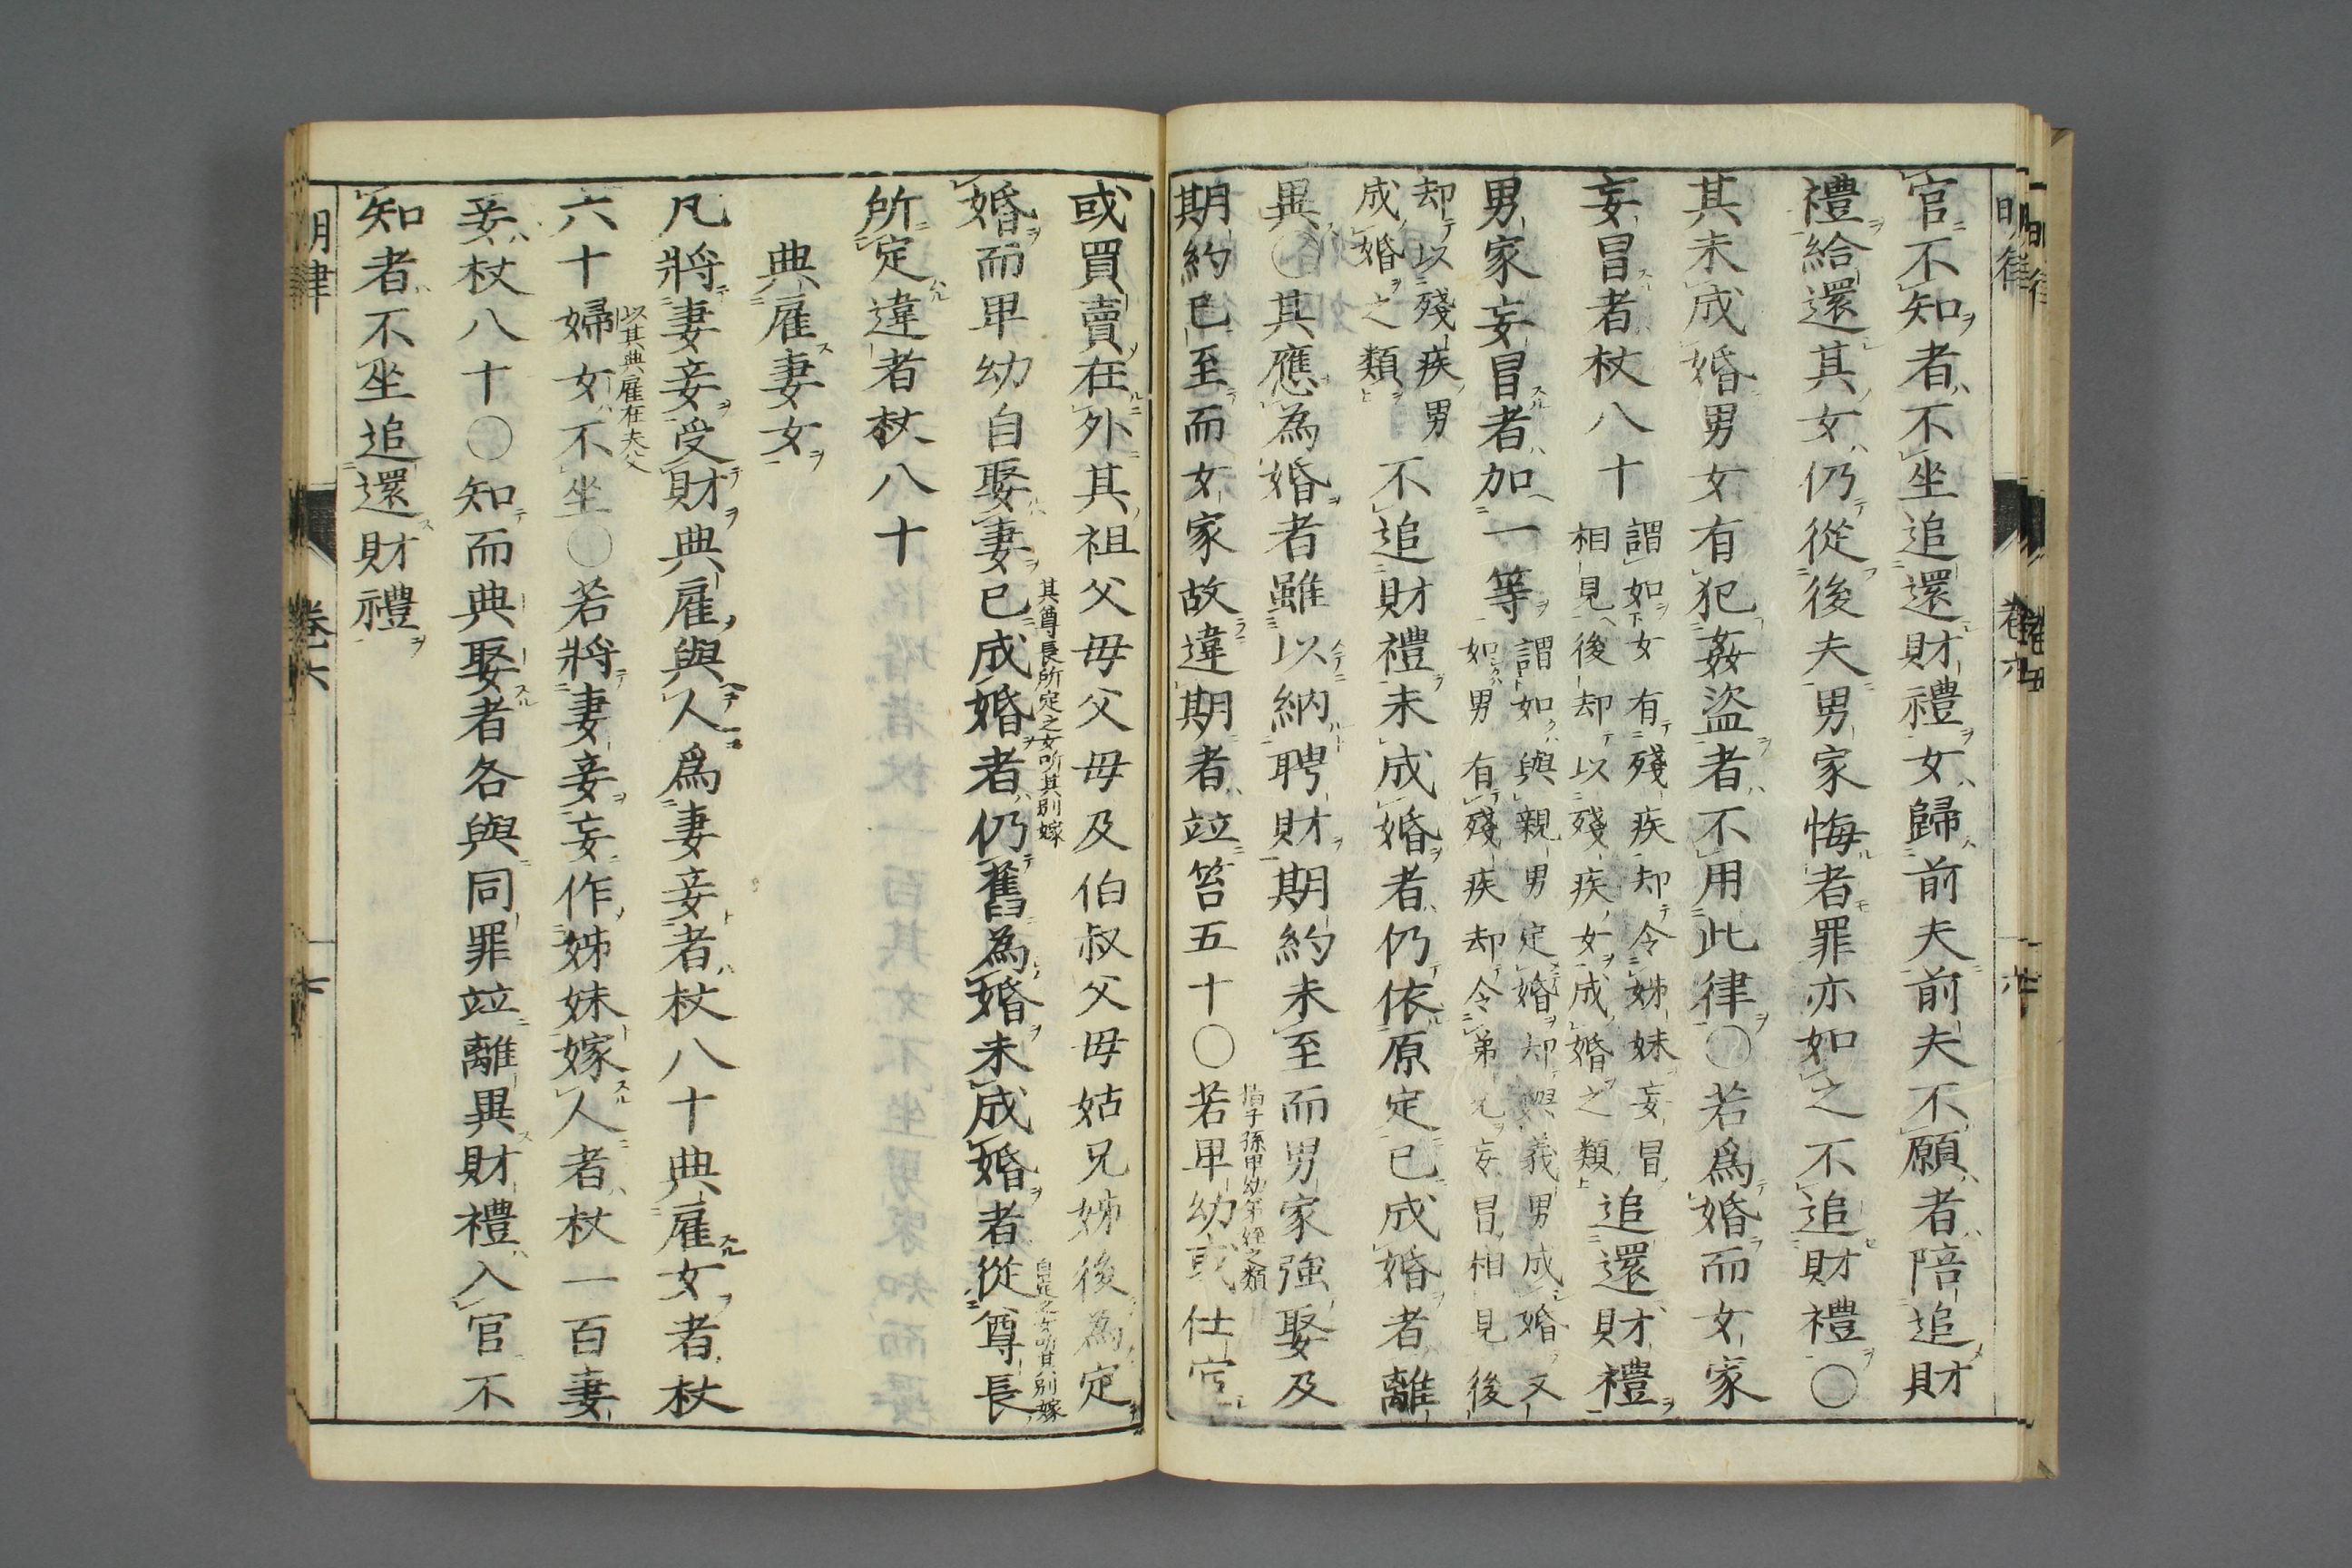 官不知者不坐追還財禮女歸前夫前夫不願者陪追財
禮給還其女仍從後夫男家悔者罪亦如之不追財禮〇
其未成婚男女有犯姦盜者不用此律〇若爲婚而女家
妄冒者杖八十
謂如女有殘疾却令姊妹妄冒
相見後却以殘疾女成婚之類
追還財禮
男家妄冒者加一等
謂如與親男定婚却與義男成婚又
如男有殘疾却令弟兄妄冒相見後
却以殘疾男
成婚之類
不追財禮未成婚者仍依原定已成婚者離
異〇其應為婚者雖以納聘財期約未至而男家強娶及
期約已至而女家故違期者竝笞五十〇若卑幼或仕宦
指子孫卑幼弟姪之類
或買賣在外其祖父母父母及伯叔父母姑兄姊後為定
婚而卑幼自娶妻已成婚者仍舊為婚未成婚者從尊長
其尊長所定之女听其別嫁
自定之女听其別嫁
所定違者杖八十
典雇妻女
凡將妻妾受財典雇與人爲妻妾者杖八十典雇女者杖
六十婦女不坐〇若將妻妾妄作姊妹嫁人者杖一百妻
以其典雇在夫父
妾杖八十〇知而典娶者各與同罪竝離異財禮入官不
知者不坐追還財禮
明律
卷六
明律
卷六